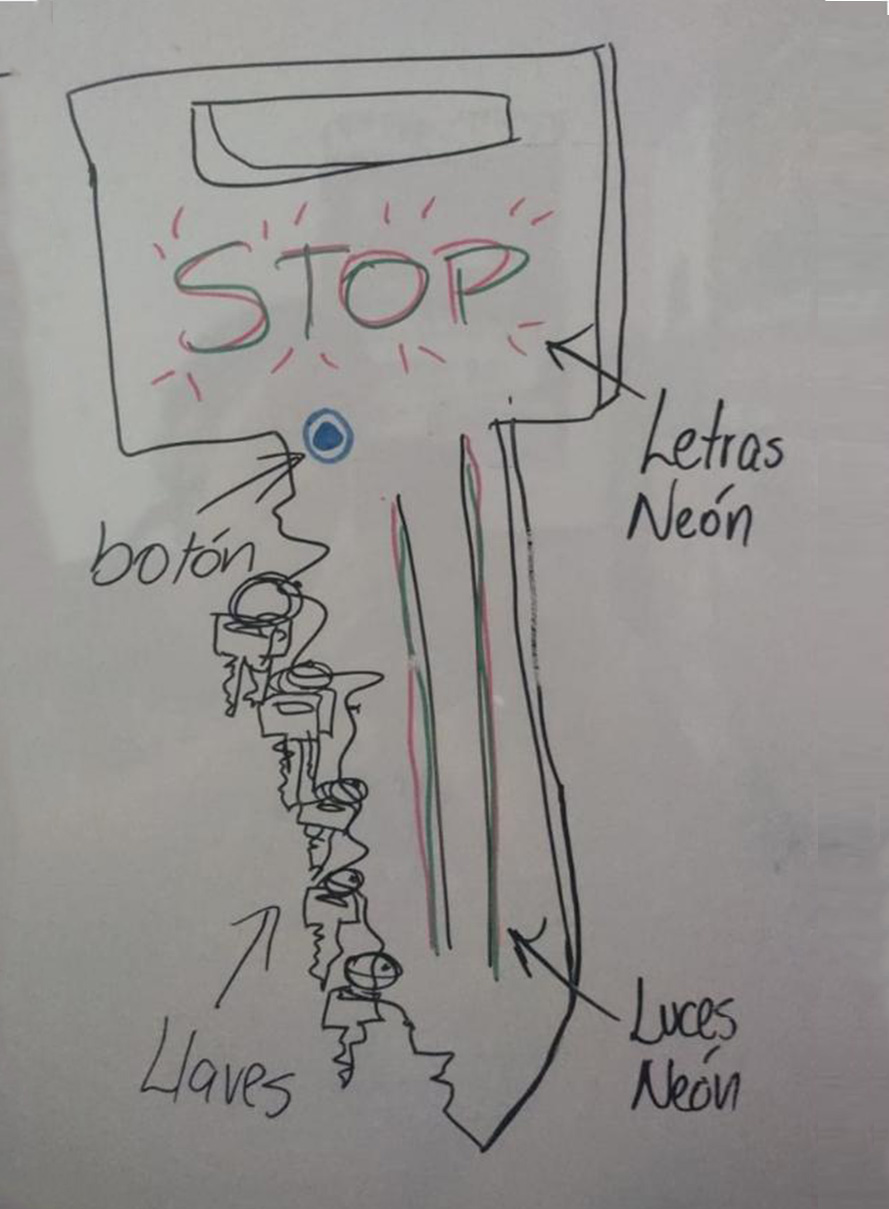 STOP
Letras
Neón
botón
Llaves
Luces
Neón